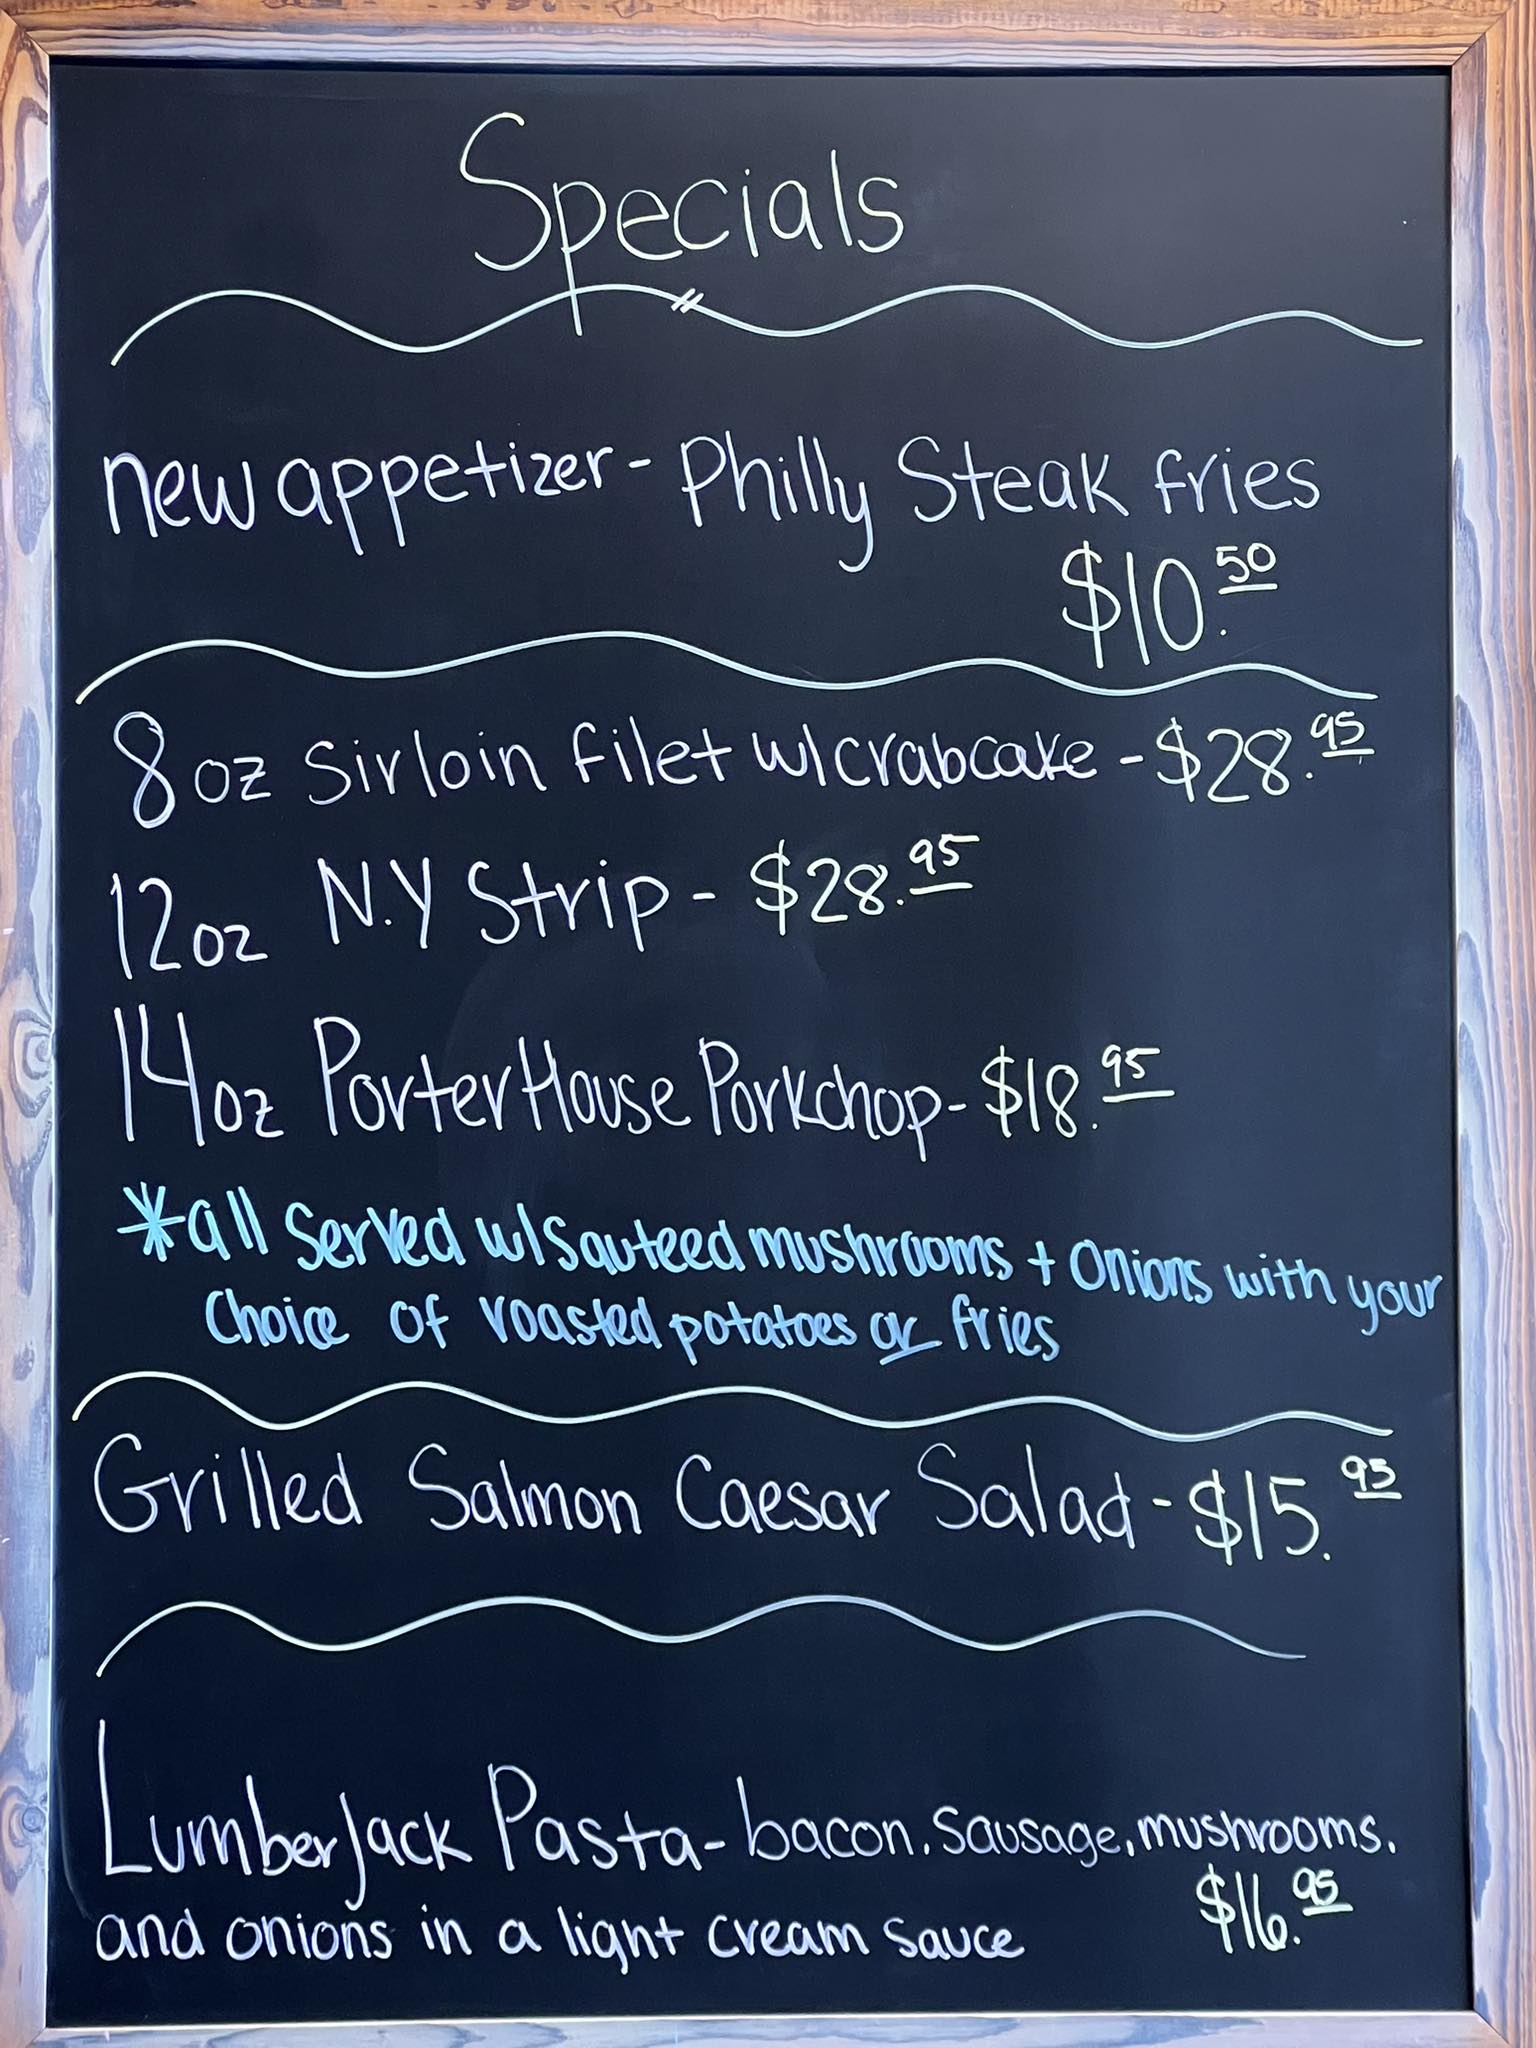 Specials
new appetizer - Philly Steak fries
$10.50
8oz Sirloin filet w/crabcake - $28.95
12oz N.Y Strip - $28.95
14oz PorterHouse Porkchop - $18.95
*all Served w/Sauteed mushrooms + Onions with your
Choice of roasted potatoes or fries
Grilled Salmon Caesar Salad - $15.95
LumberJack Pasta - bacon, sausage, mushrooms,
and onions in a light cream sauce $16.95